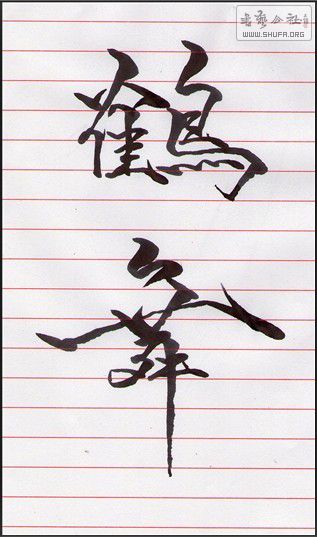 书艺公社
WWW.SHUFA.ORG
鶴
舞